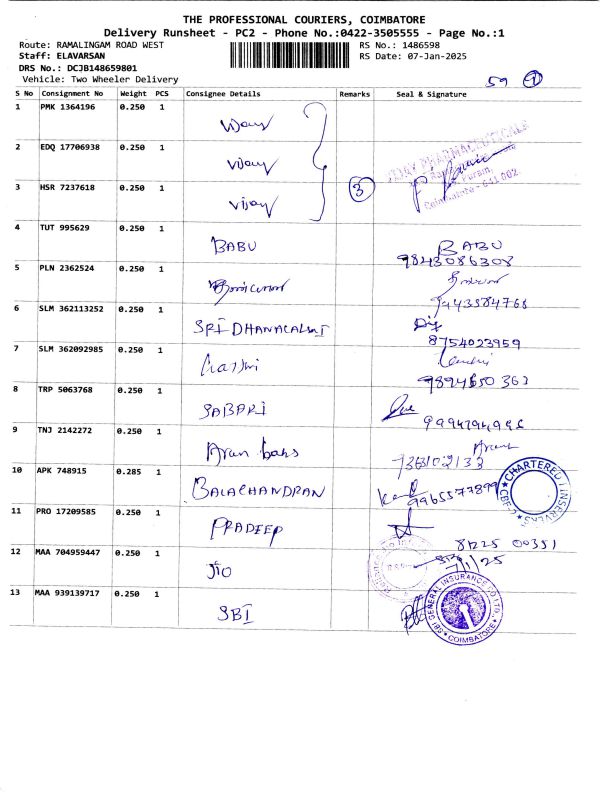 THE PROFESSIONAL COURIERS, COIMBATORE
Delivery Runsheet - PC2 - Phone No.:0422-3505555 - Page No.:1
Route: RAMALINGAM ROAD WEST
RS No.: 1486598
Staff: ELAVARSAN
RS Date: 07-Jan-2025
DRS No.: DCJB148659801
Vehicle: Two Wheeler Delivery
59 1
S No Consignment No Weight PCS Consignee Details Remarks Seal & Signature
1 PMK 1364196 0.250 1
Vijay
2 EDQ 17706938 0.250 1
Vijay
PHARMACEUTICALS
3 HSR 7237618 0.250 1
Vijay 3
Coimbatore - 641 002
4 TUT 995629 0.250 1
BABU BABU
9843086308
5 PLN 2362524 0.250 1
9443584768
6 SLM 362113252 0.250 1
SRI DHANALALSMI
8754023959
7 SLM 362092985 0.250 1
9894650362
8 TRP 5063768 0.250 1
SABARI
9994794996
9 TNJ 2142272 0.250 1
Arun
10 APK 748915 0.285 1
BALACHANDRAN 9965577899
CHARTERED
11 PRO 17209585 0.250 1
PRADEEP
81225 00351
12 MAA 704959447 0.250 1
JIO
7/1/25
13 MAA 939139717 0.250 1
SBI
SBI GENERAL INSURANCE CO LTD
COIMBATORE